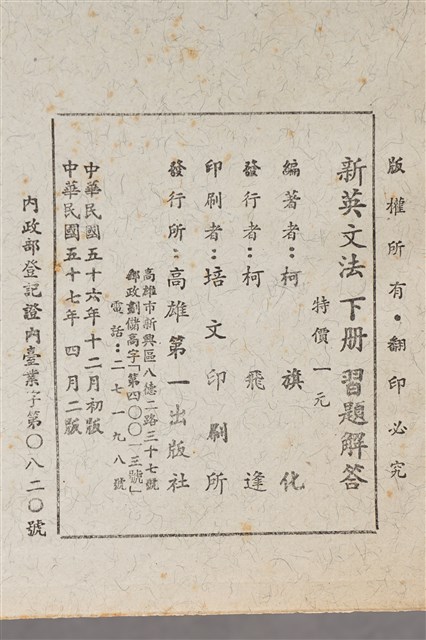 版權所有・翻印必究
新英文法下册習題解答
特價一元
編著者：柯旗化
發行者：柯飛逢
印刷者：培文印刷所
發行所：高雄第一出版社
高雄市新興區八德二路三十七號
郵政劃儲高字「第四〇〇一三號」
電話：二七一九八號
中華民國五十六年十二月初版
中華民國五十七年四月二版
內政部登記證內臺業字第〇八二〇號